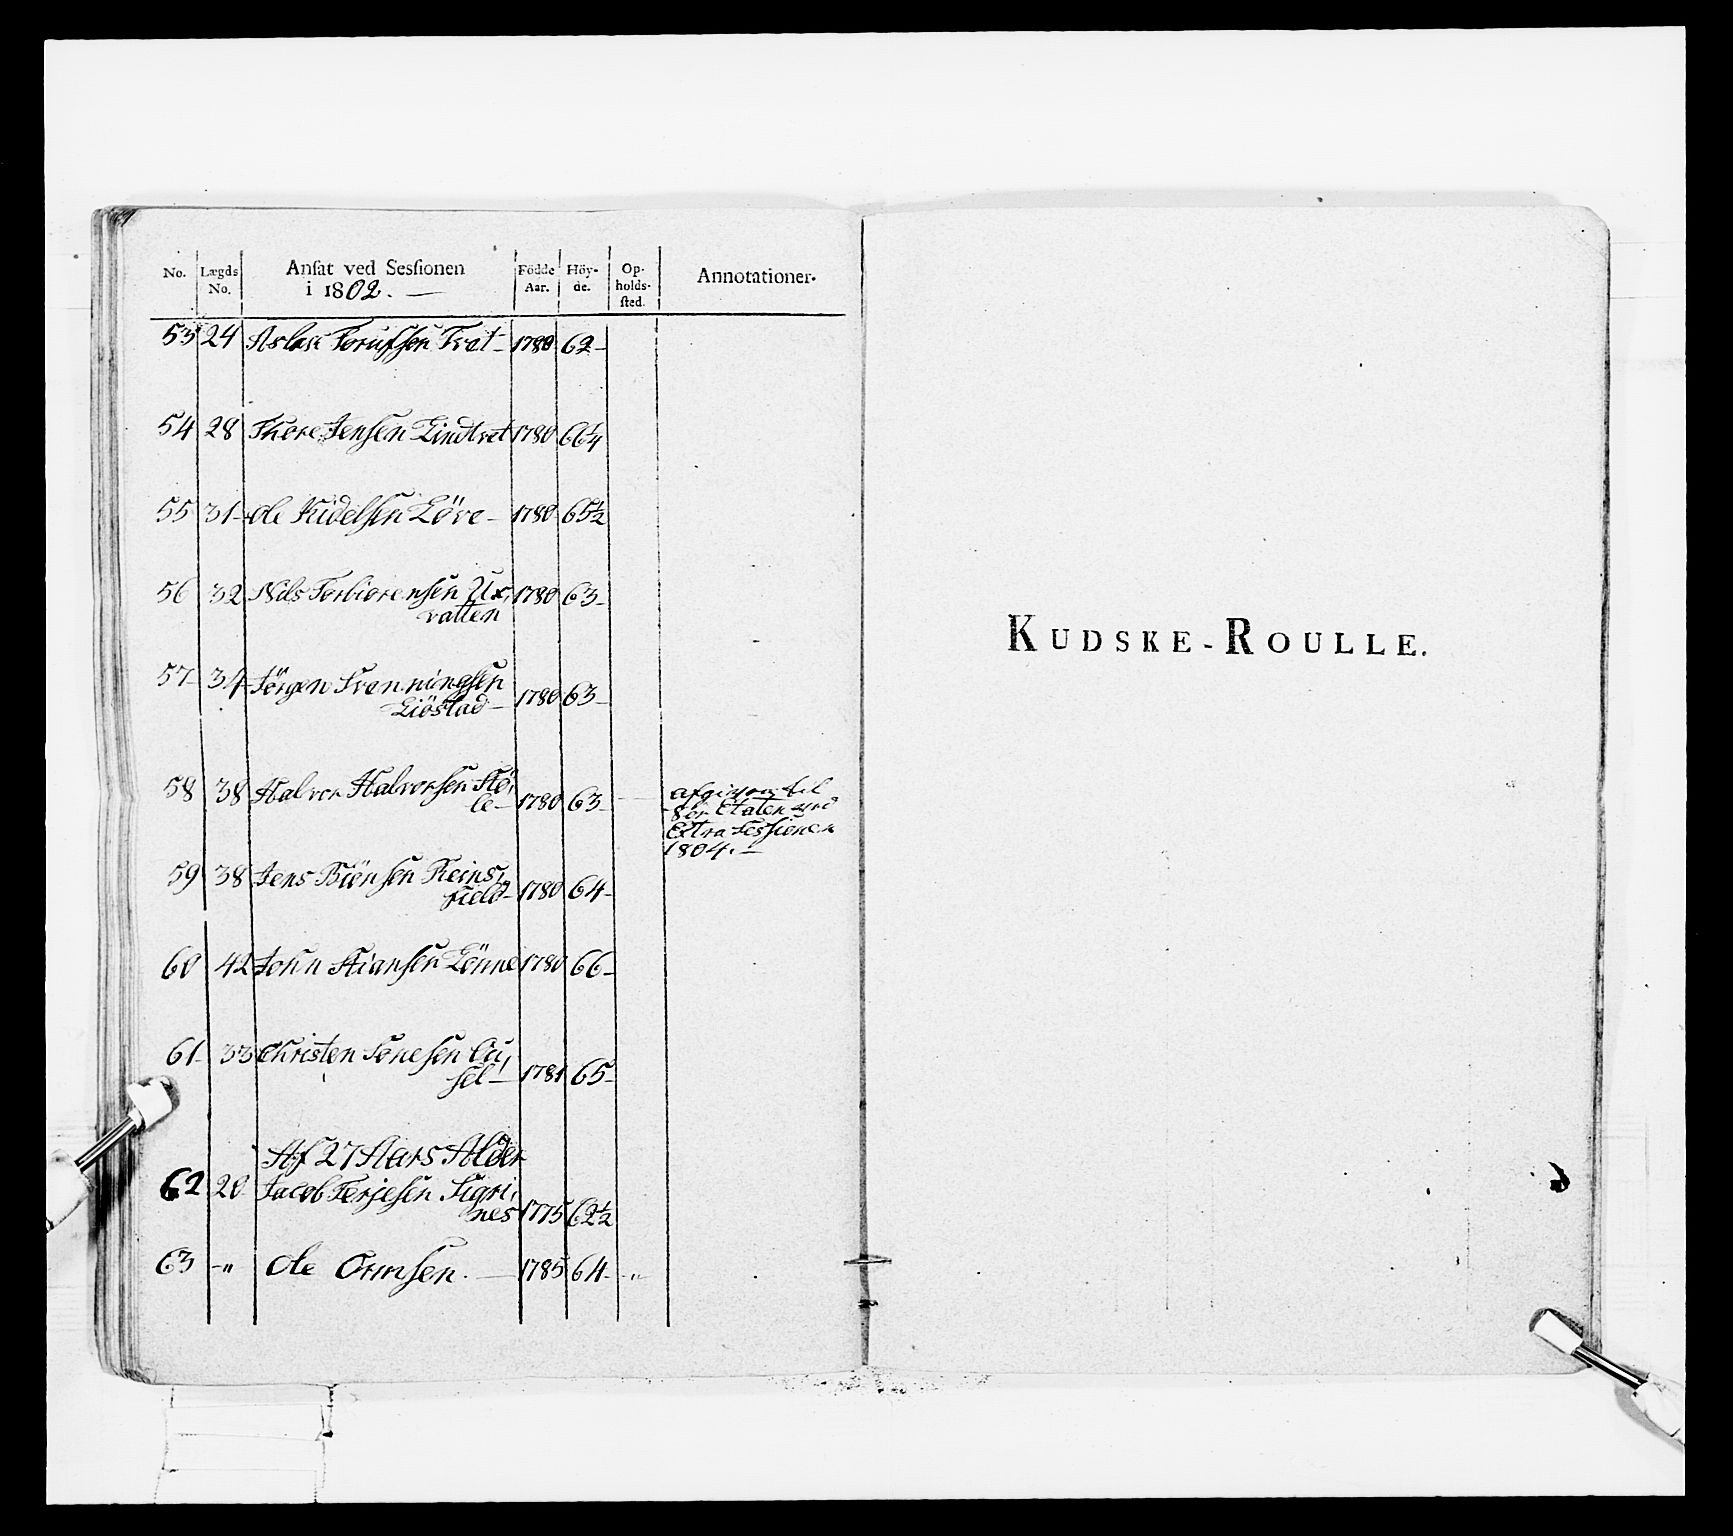 No. Lægds No. Ansat ved Sessionen i 1802. Födde Aar. Höy-de. Op-holds-sted. Annotationer.
53 24 Aslak Torufsen Tvet 1780 62
54 28 Thore Jensen Lindtvet 1780 66 1/4
55 31 Ole Kidelsen Löve 1780 65 1/2
56 32 Nils Torbiörensen Ux,
vatten 1780 63
57 37 Jörgen Svenningsen
Liöstad 1780 63
58 38 Halvor Halvorsen Hö,
le 1780 63 afgiven til
Söe Etaten ved
Extra Sessionen
1804.
59 38 Jens Biönsen Reins,
field 1780 64
60 42 John Kiansen Lönne 1780 66
61 33 Christen Sönesen
sel 1781 65
Af 27 Aars Alder
62 20 Jacob Terjesen Sigri,
nes 1775 62 1/2
63 -" Ole Ormsen. 1785 64 "
KUDSKE-ROULLE.